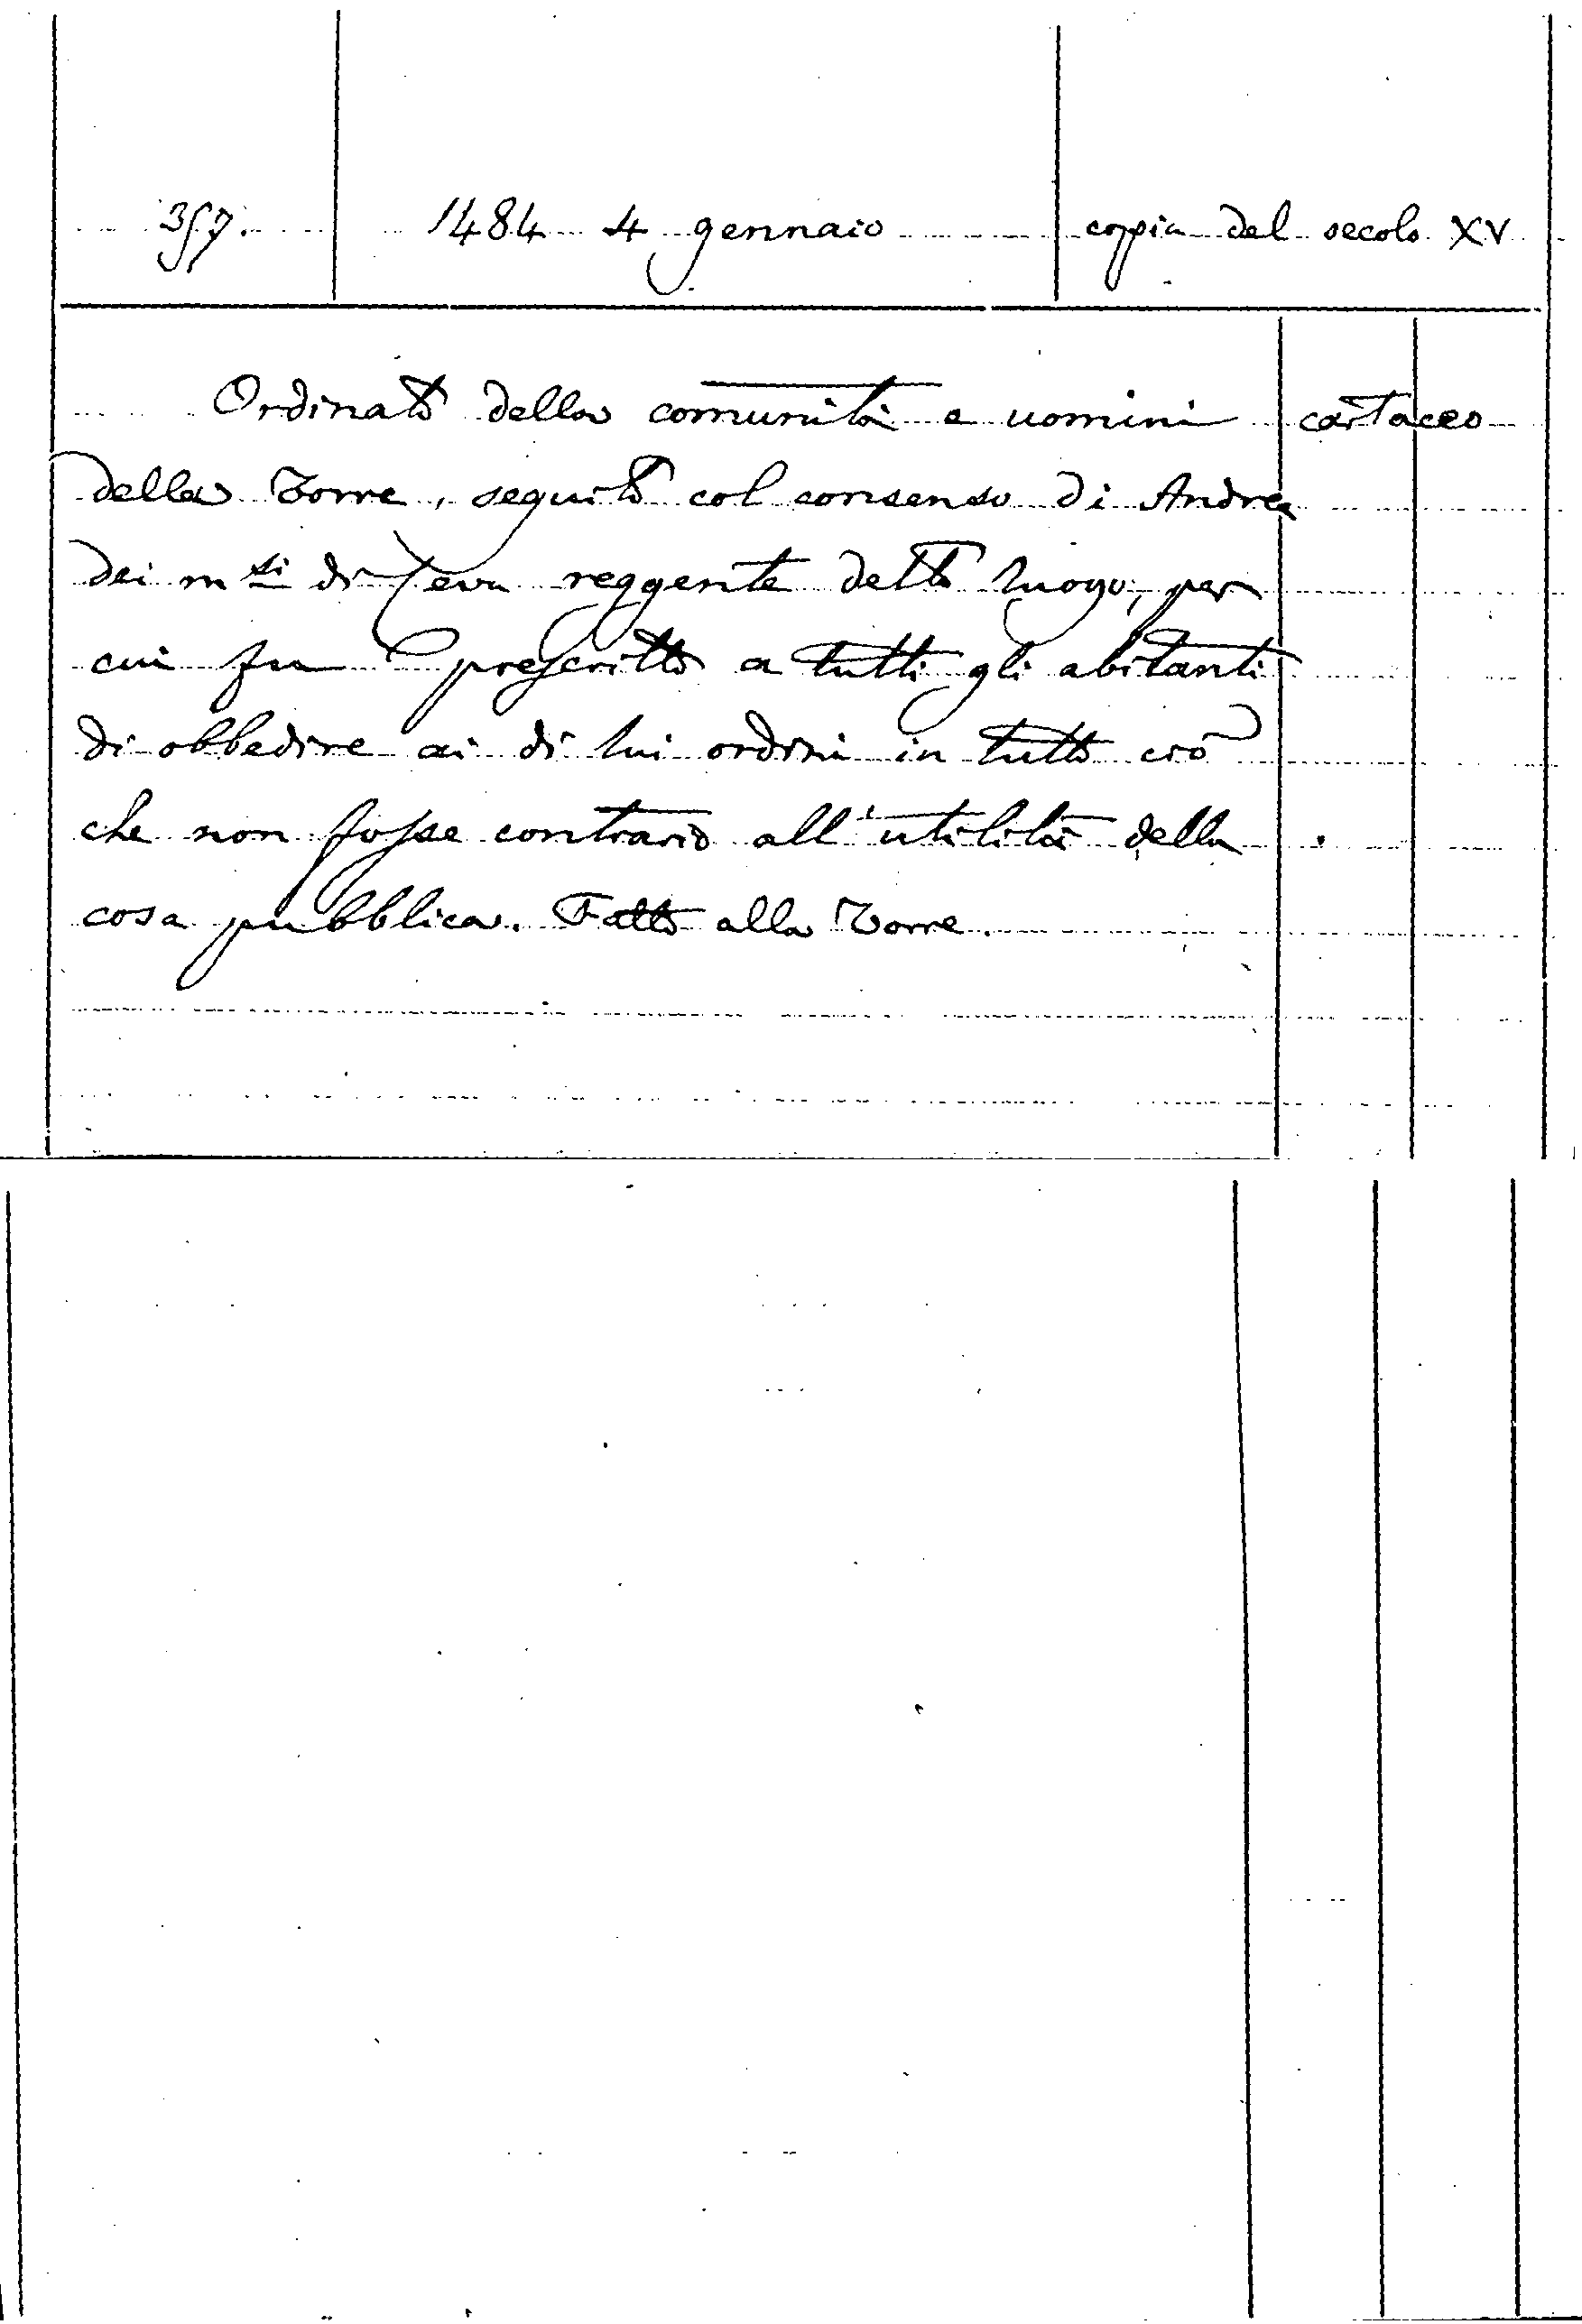 357. 1484 4 gennaio copia del secolo XV
Ordinato della comunità e uomini cartaceo
della Torre, seguito col consenso di Andrea
dei m.si di Ceva reggente detto luogo, per
cui fu prescritto a tutti gli abitanti
di obbedire ai di lui ordini in tutto ciò
che non fosse contrario all'utilità della
cosa pubblica. Fatto alla Torre.